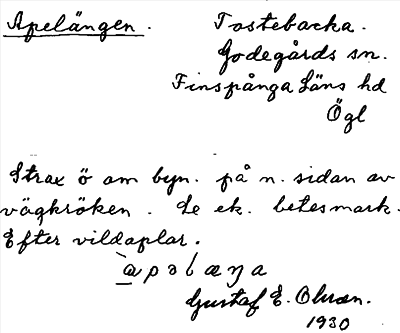 Apelängen. Tostebacka.
Godegårds sn.
Finspånga Läns hd
Ögl
Strax ö om byn. på n. sidan av
vägkröken. Le ek. betesmark.
Efter vildaplar.
Gustaf E. Olsson.
1930